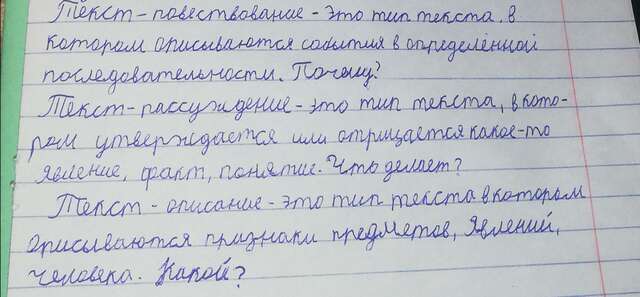 Текст - повествование - это тип текста, в
котором описываются события в определённой
последовательности. Почему?
Текст - рассуждение - это тип текста, в кото-
ром утверждается или отрицается какое-то
явление, факт, понятие. Что делает?
Текст - описание - это тип текста в котором
описываются признаки предметов, явлений,
человека. Какой?